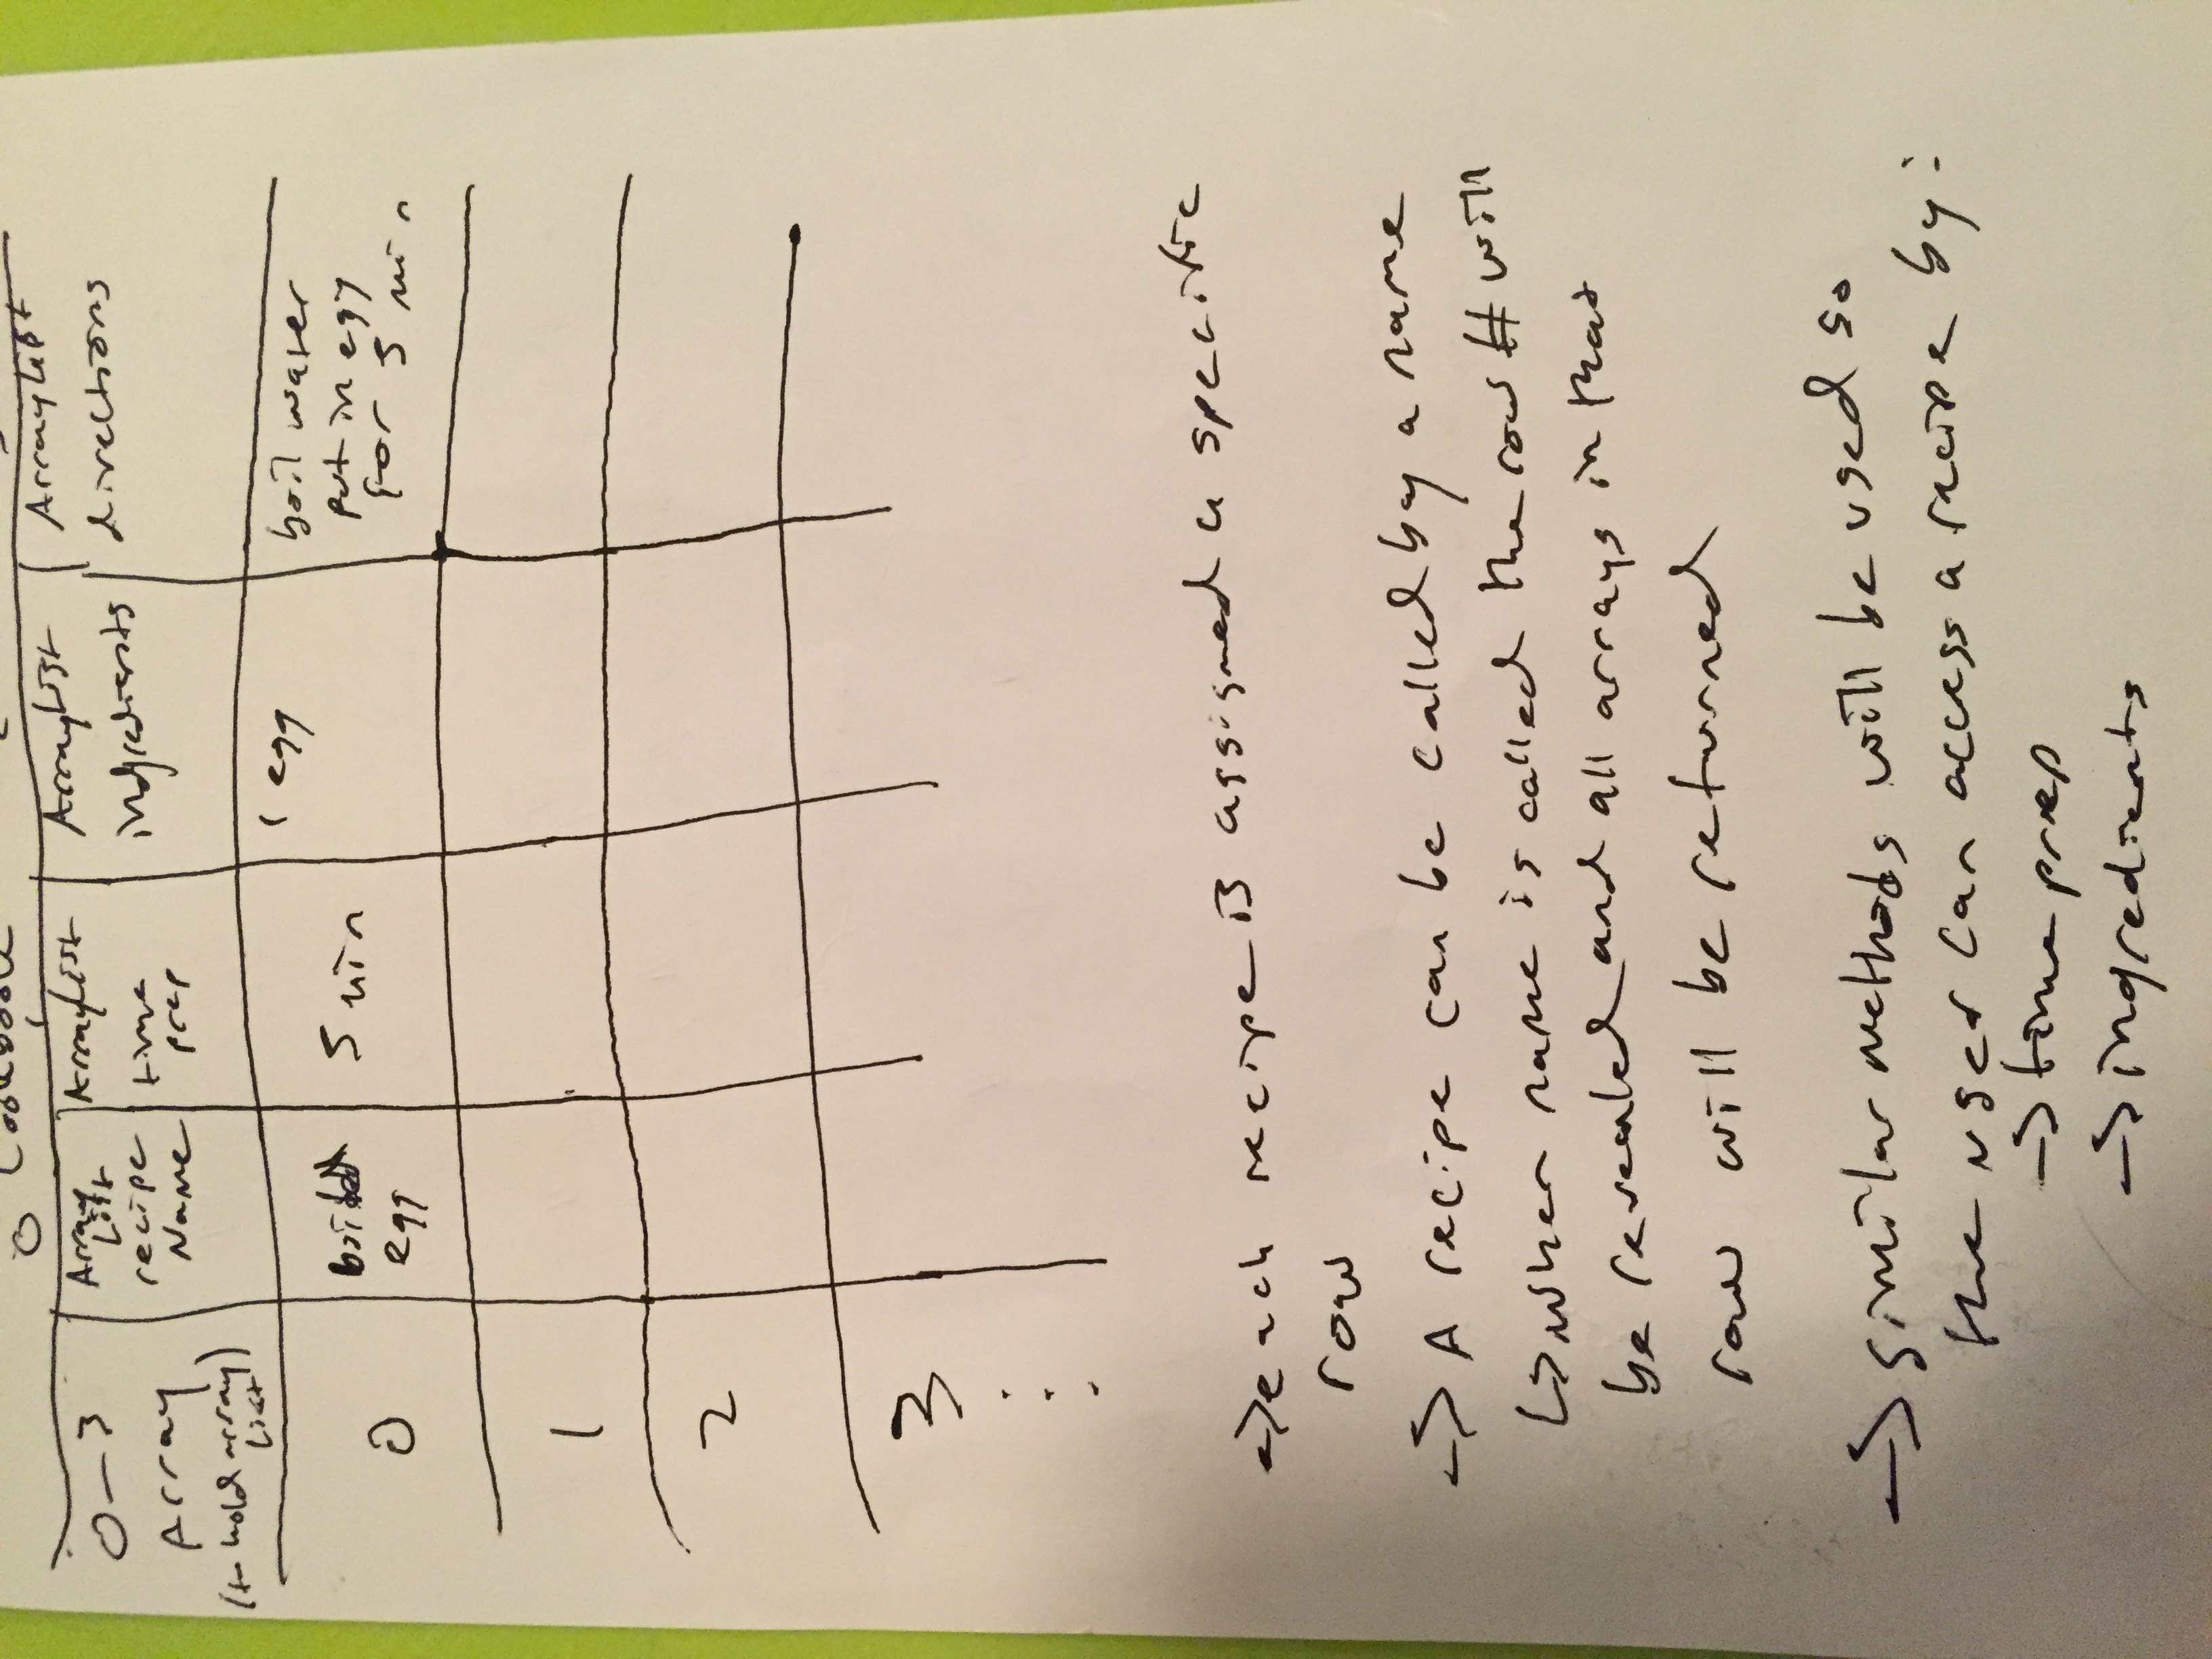 0 Cookbook 1 2 3
0-3 Array (to hold array List)
Array List recipe Name
ArrayList time prep
ArrayList ingredients
ArrayList directions
0
boiled egg
5 min
1 egg
boil water
put in egg
for 5 min
1
2
3
.
.
.
->each recipe is assigned a specific
row
-> A recipe can be called by a name
↳when name is called the row # will
be revealed and all arrays in that
row will be returned
-> similar methods will be used so
the user can access a recipe by:
-> time prep
-> ingredients